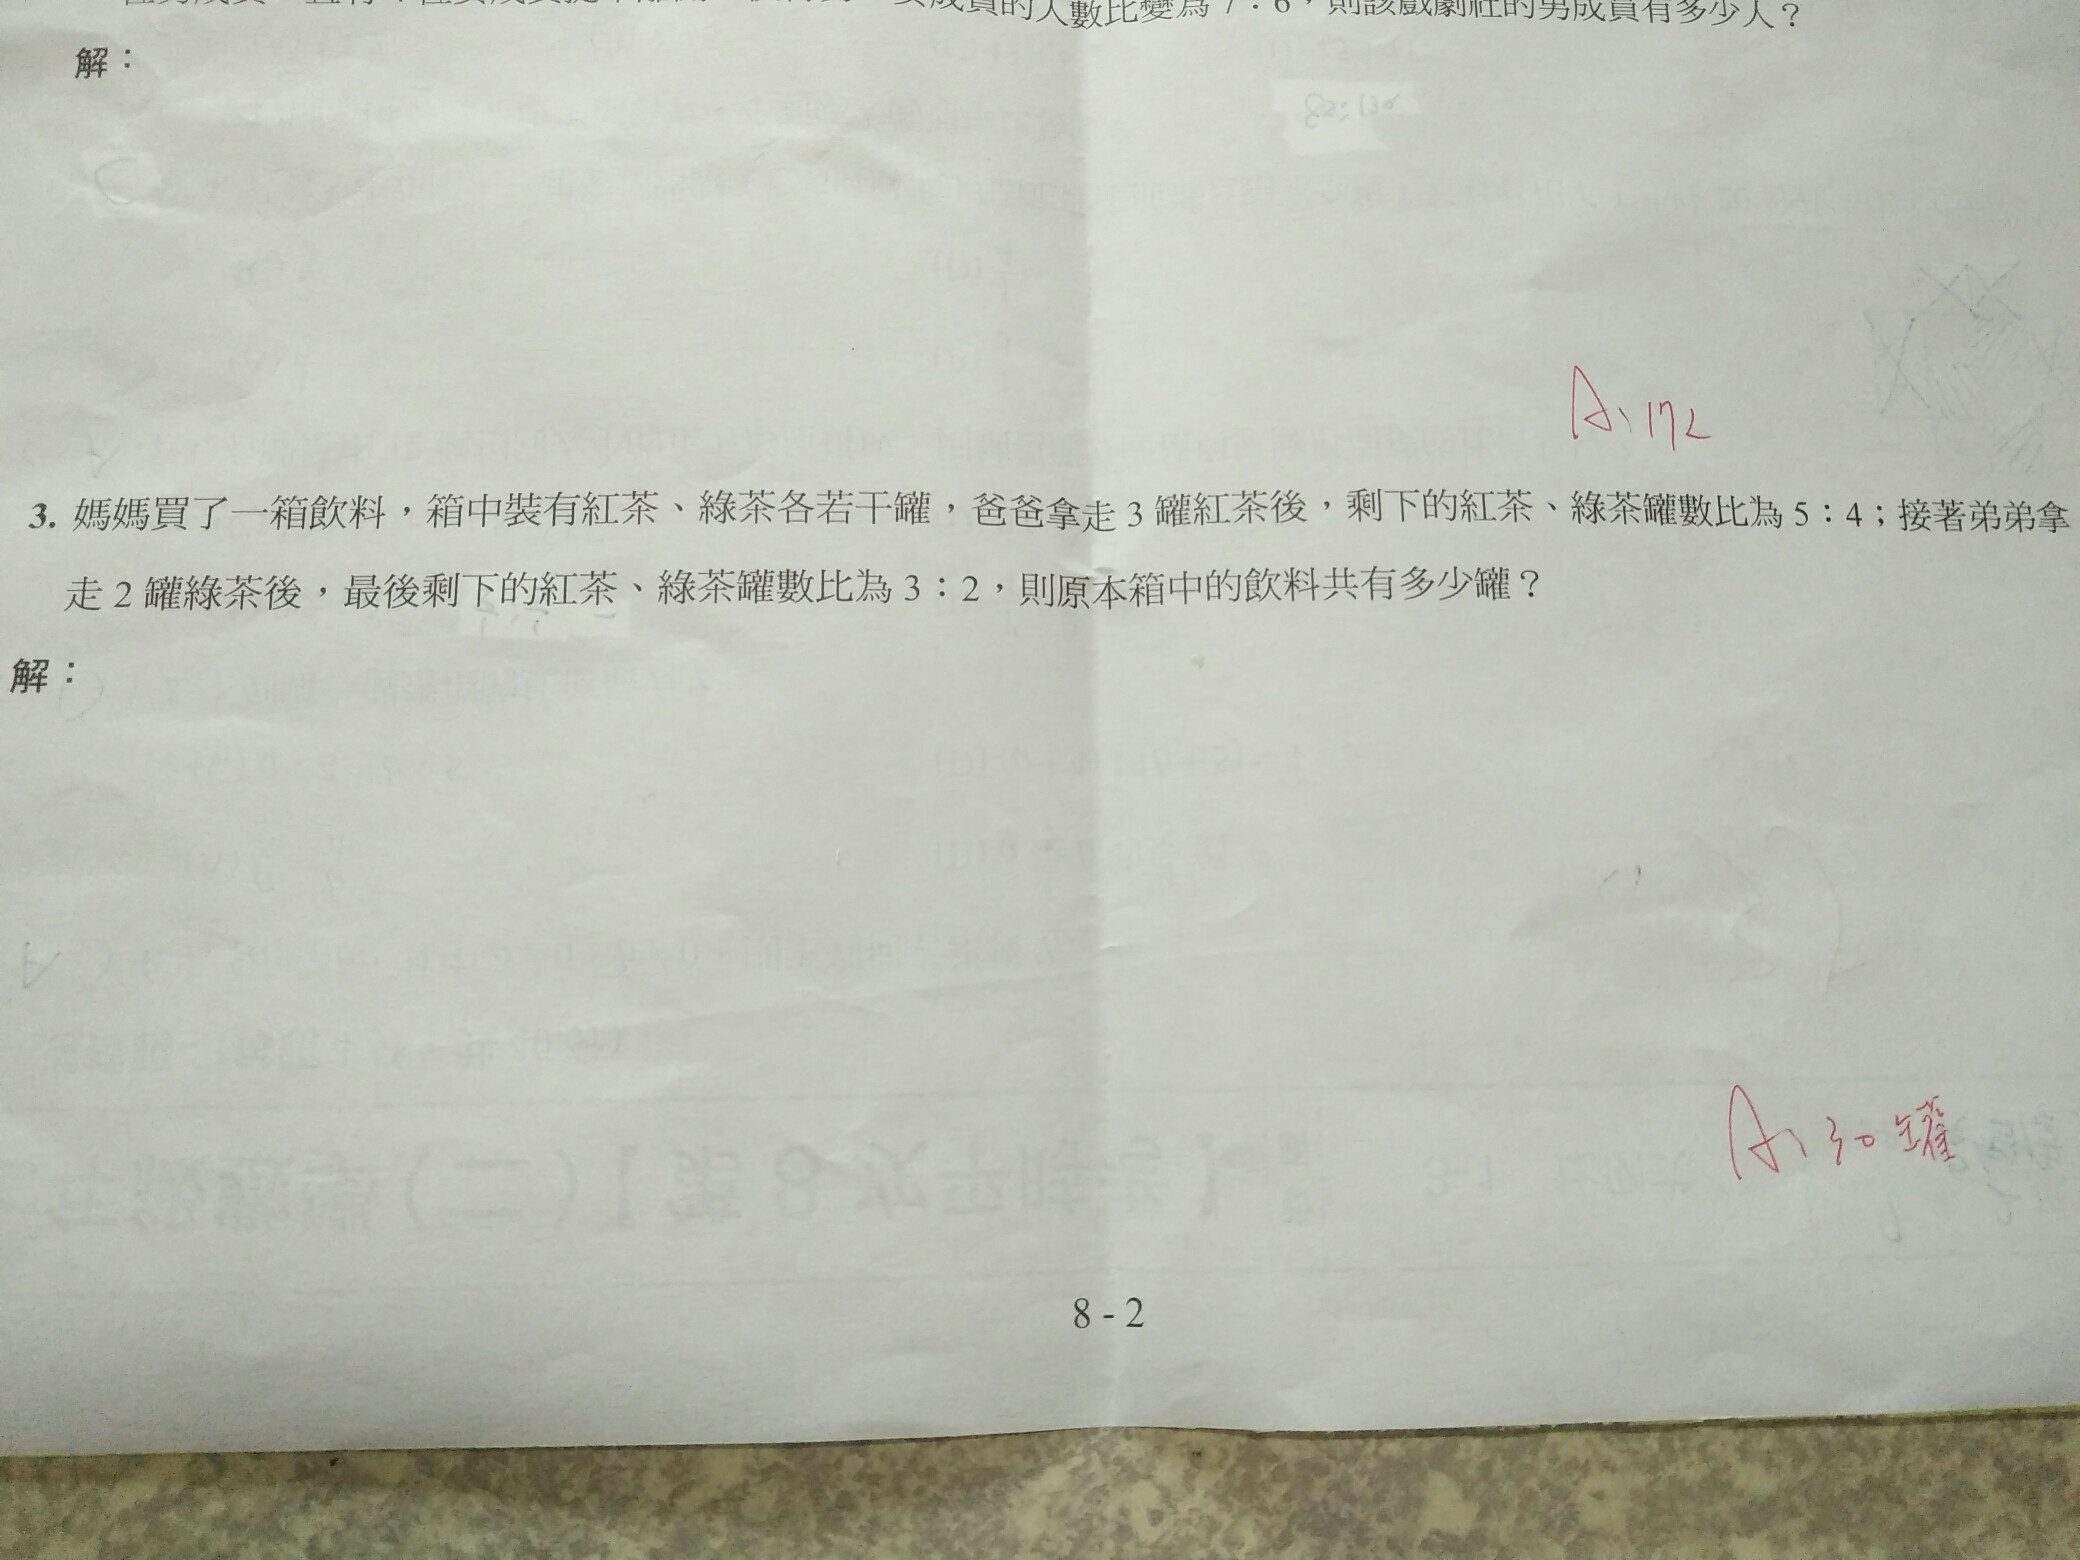 成員的人數比變為 7：6，則該戲劇社的男成員有多少人？
解：
A：172
3. 媽媽買了一箱飲料，箱中裝有紅茶、綠茶各若干罐，爸爸拿走 3 罐紅茶後，剩下的紅茶、綠茶罐數比為 5：4；接著弟弟拿
走 2 罐綠茶後，最後剩下的紅茶、綠茶罐數比為 3：2，則原本箱中的飲料共有多少罐？
解：
A：30罐
8 - 2